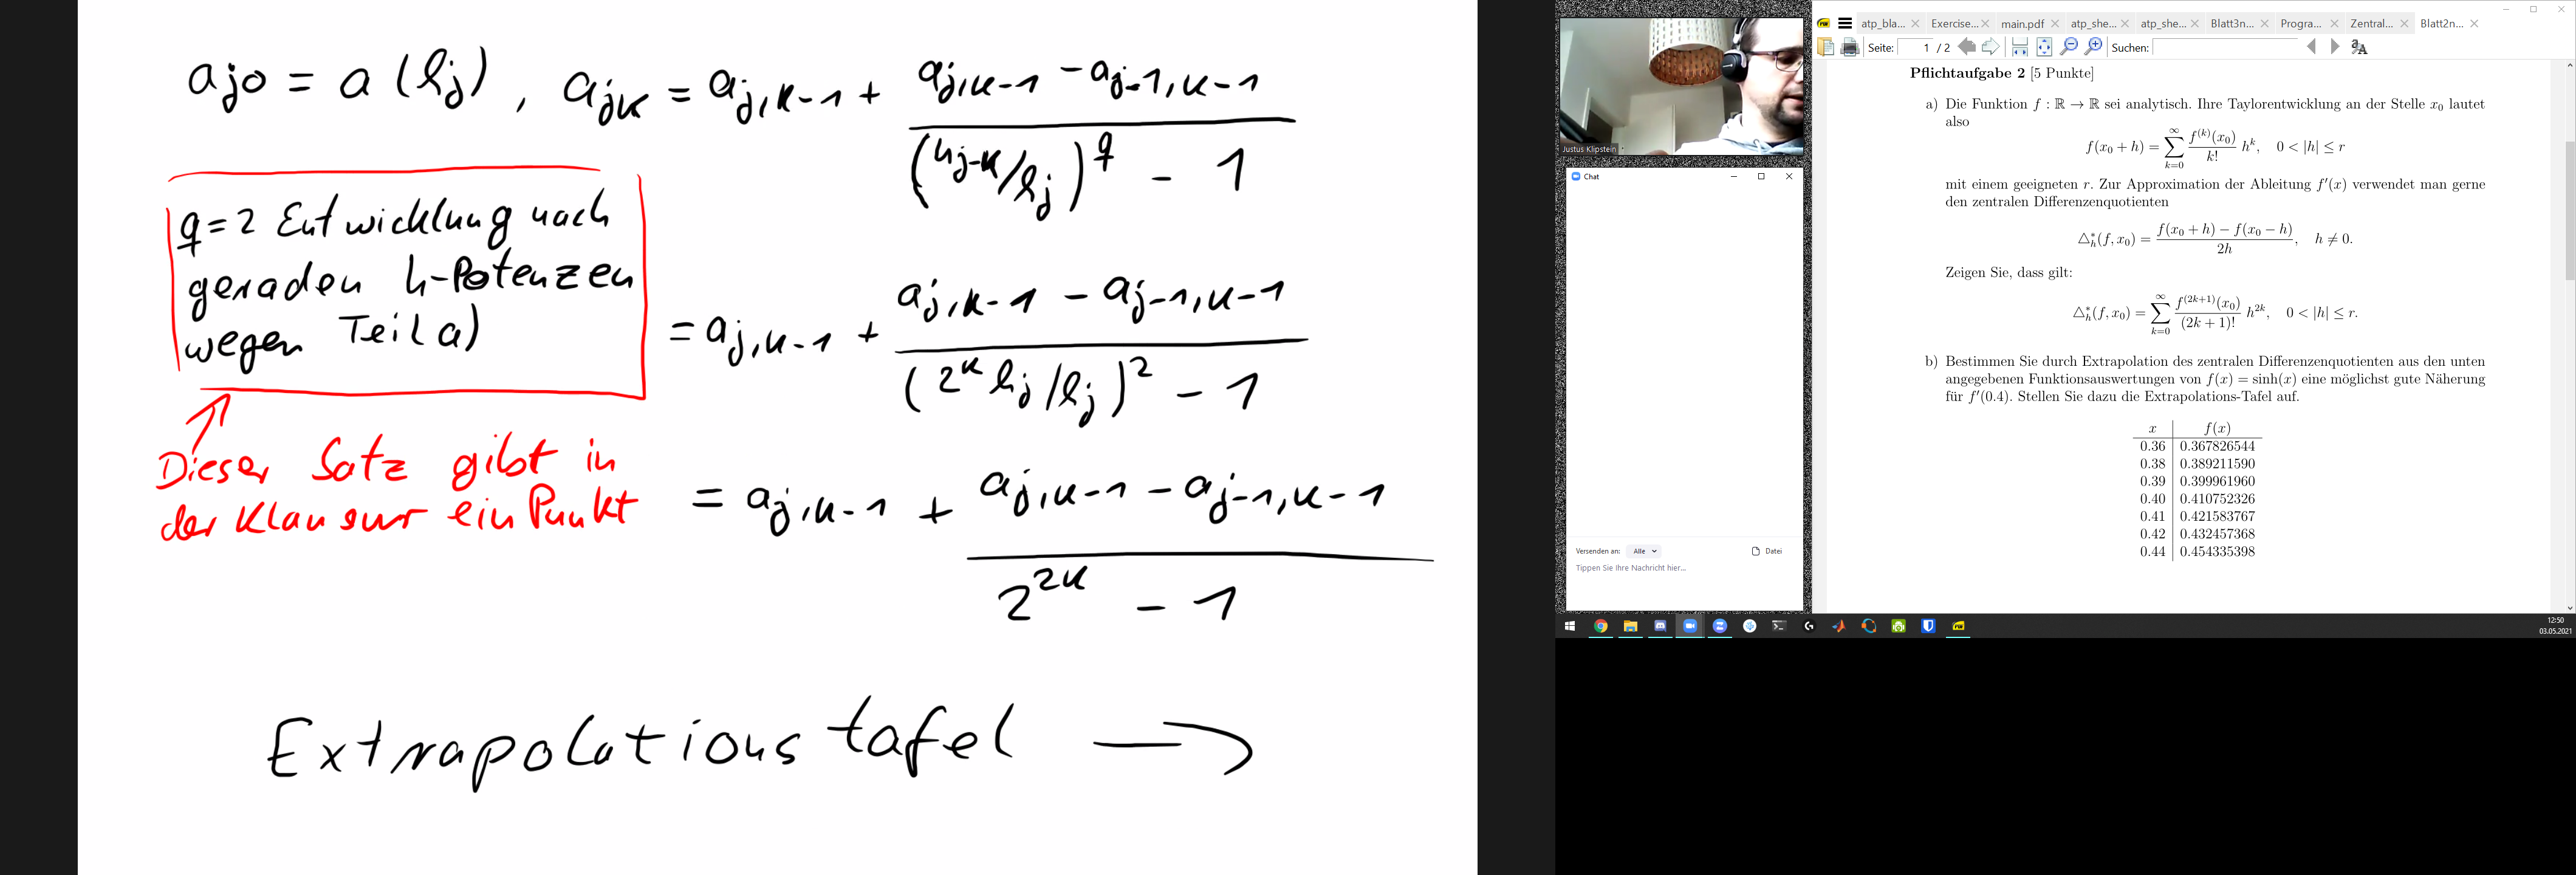 ajo = a (hj) , ajk = aj,k-1 + (aj,k-1 - aj-1,k-1) / ((hj-k/hj)^q - 1)
q=2 Entwicklung nach
geraden h-Potenzen
wegen Teil a)
= aj,k-1 + (aj,k-1 - aj-1,k-1) / ((2^k hj/hj)^2 - 1)
Dieser Satz gibt in
der Klausur ein Punkt
= aj,k-1 + (aj,k-1 - aj-1,k-1) / (2^2k - 1)
Extrapolationstafel →
Justus Klipstein
Chat
Versenden an: Alle Datei
Tippen Sie Ihre Nachricht hier...
atp_bla... Exercise... main.pdf atp_she... atp_she... Blatt3n... Progra... Zentral... Blatt2n...
Seite: 1 / 2 Suchen:
Pflichtaufgabe 2 [5 Punkte]
a) Die Funktion f : ℝ → ℝ sei analytisch. Ihre Taylorentwicklung an der Stelle x₀ lautet
also
f(x₀ + h) = ∑_{k=0}^{∞} f^(k)(x₀)/k! h^k, 0 < |h| ≤ r
mit einem geeigneten r. Zur Approximation der Ableitung f′(x) verwendet man gerne
den zentralen Differenzenquotienten
△*_h(f, x₀) = (f(x₀ + h) − f(x₀ − h))/2h, h ≠ 0.
Zeigen Sie, dass gilt:
△*_h(f, x₀) = ∑_{k=0}^{∞} f^(2k+1)(x₀)/(2k + 1)! h^2k, 0 < |h| ≤ r.
b) Bestimmen Sie durch Extrapolation des zentralen Differenzenquotienten aus den unten
angegebenen Funktionsauswertungen von f(x) = sinh(x) eine möglichst gute Näherung
für f′(0.4). Stellen Sie dazu die Extrapolations-Tafel auf.
x f(x)
0.36 0.367826544
0.38 0.389211590
0.39 0.399961960
0.40 0.410752326
0.41 0.421583767
0.42 0.432457368
0.44 0.454335398
12:50
03.05.2021